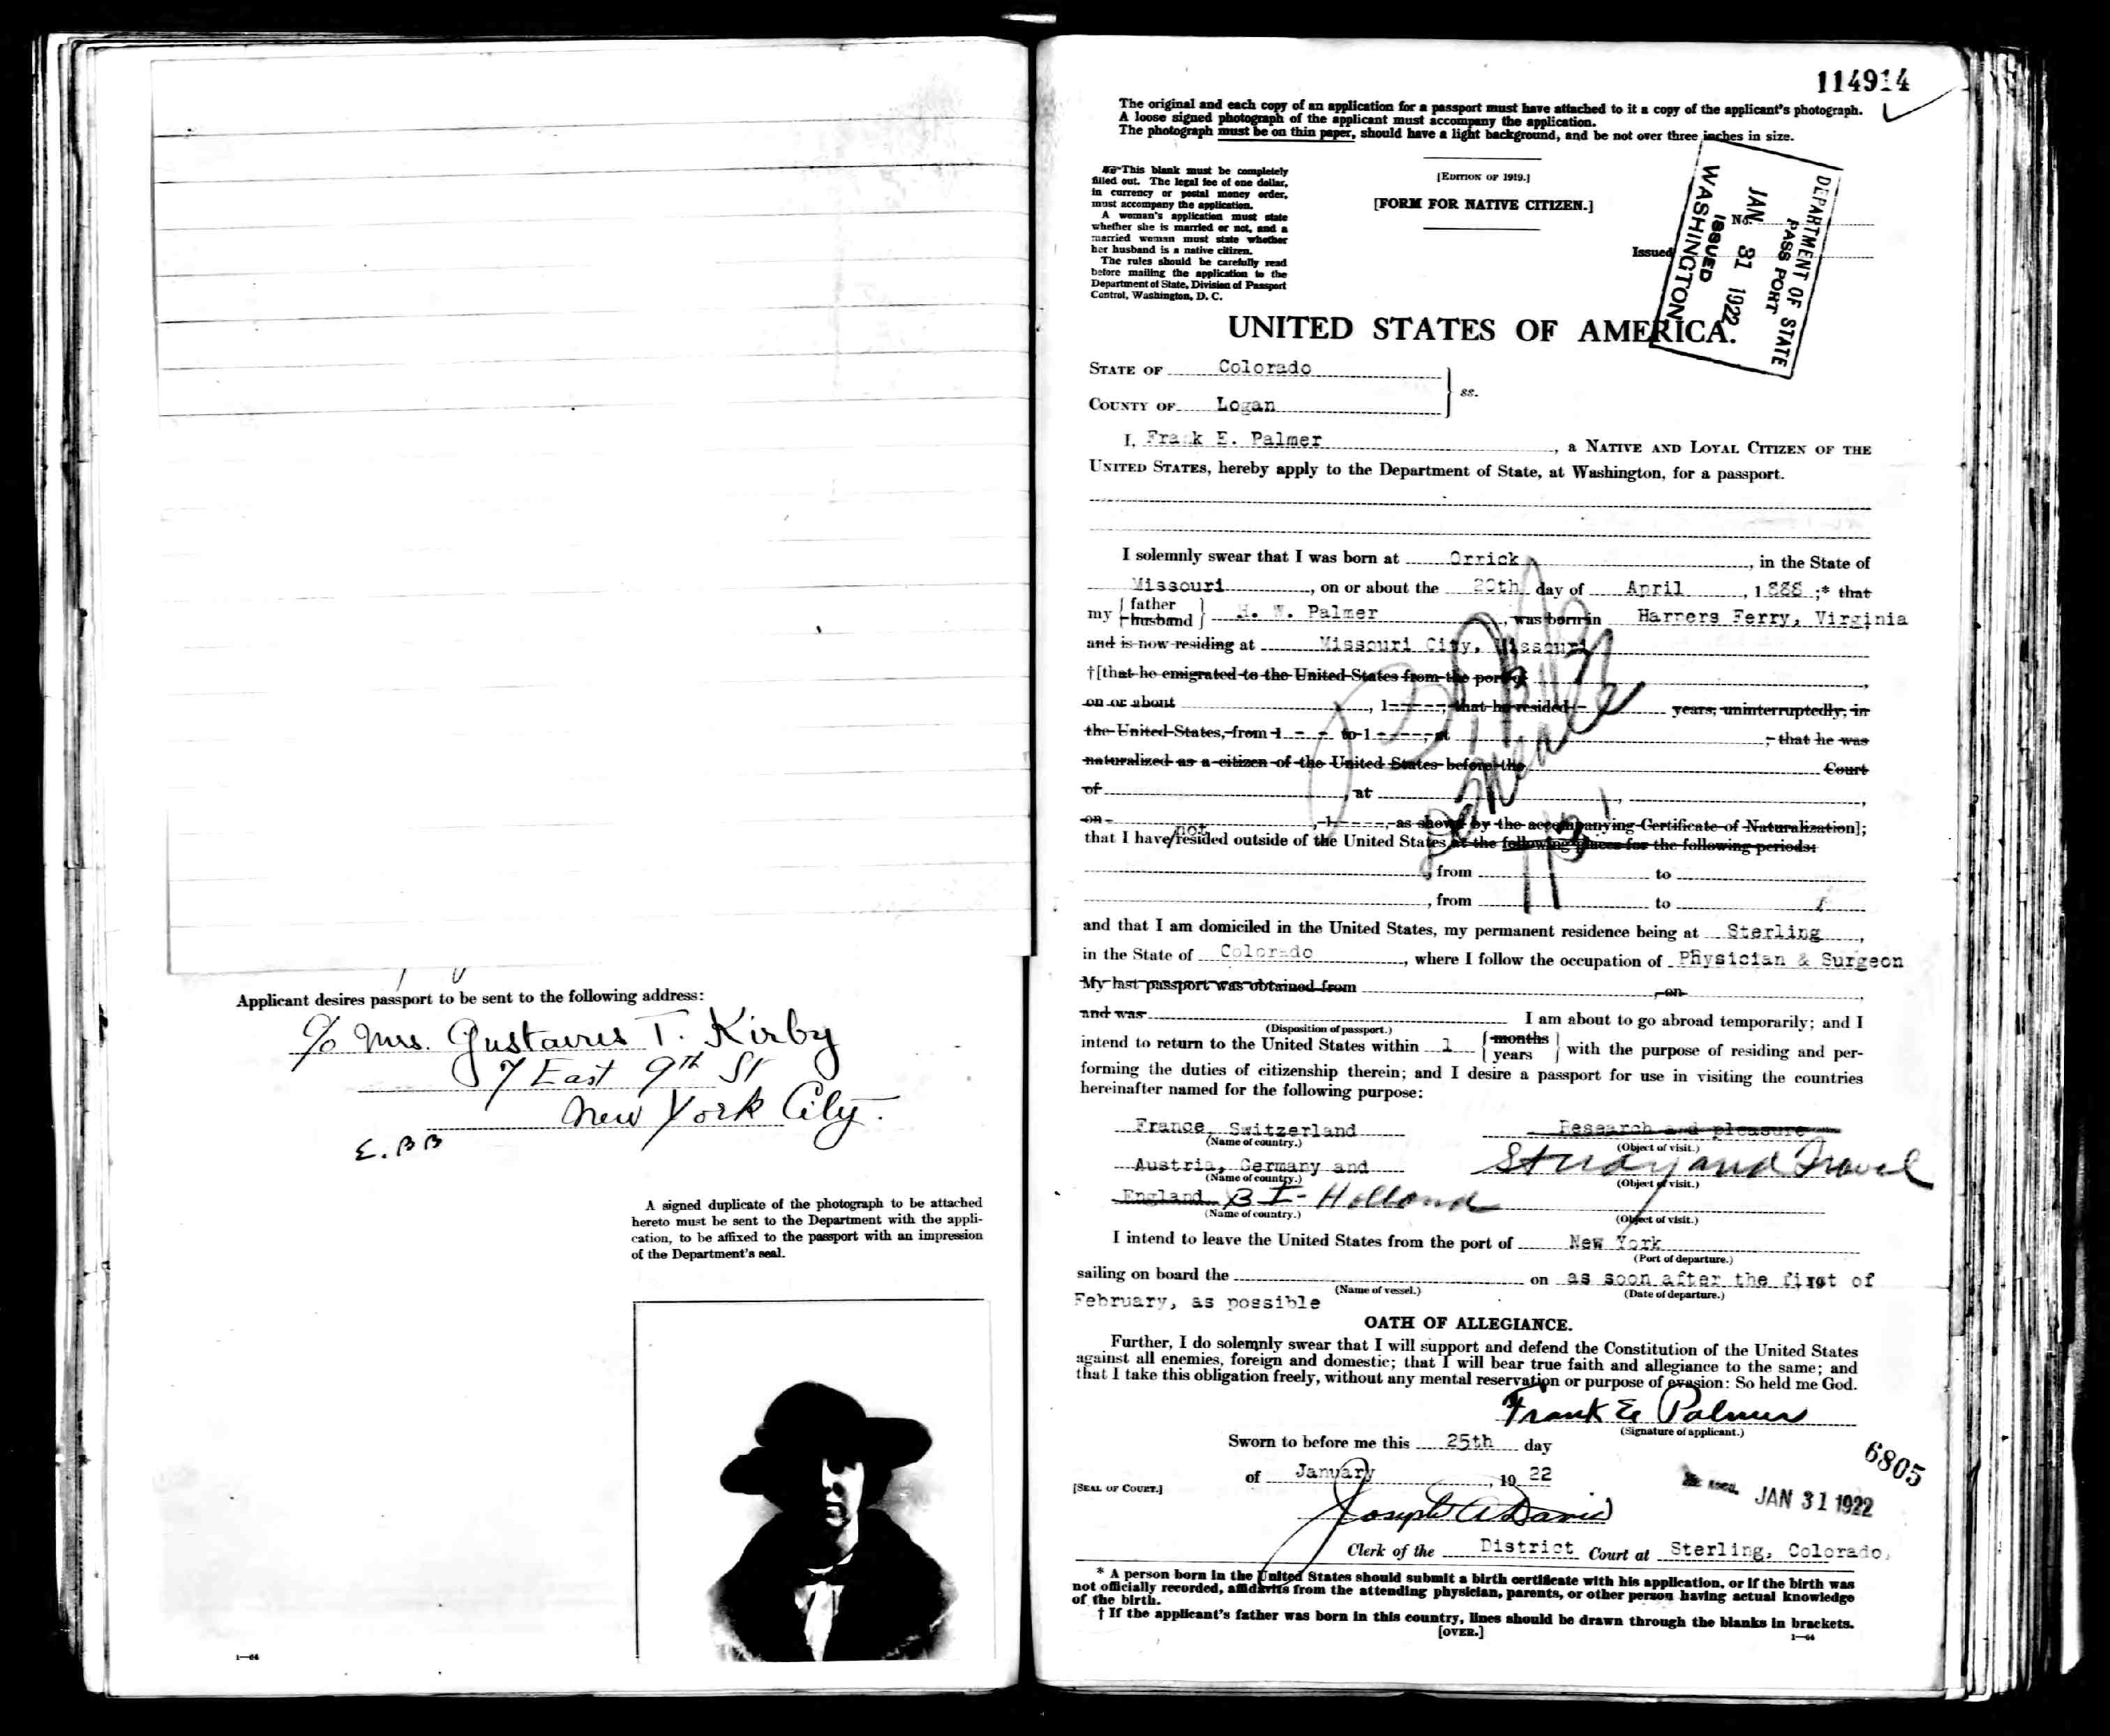 Applicant desires passport to be sent to the following address:
c/o Mrs. Gustavus T. Kirby
7 East 9th St
New York City.
E. BB
A signed duplicate of the photograph to be attached
hereto must be sent to the Department with the appli-
cation, to be affixed to the passport with an impression
of the Department's seal.
1—64
114914
The original and each copy of an application for a passport must have attached to it a copy of the applicant's photograph.
A loose signed photograph of the applicant must accompany the application.
The photograph must be on thin paper, should have a light background, and be not over three inches in size.
This blank must be completely
filled out. The legal fee of one dollar,
in currency or postal money order,
must accompany the application.
A woman's application must state
whether she is married or not, and a
married woman must state whether
her husband is a native citizen.
The rules should be carefully read
before mailing the application to the
Department of State, Division of Passport
Control, Washington, D. C.
[EDITION OF 1919.]
[FORM FOR NATIVE CITIZEN.]
No.
Issued
DEPARTMENT OF STATE
PASSPORT
JAN 31 1922
ISSUED
WASHINGTON
UNITED STATES OF AMERICA.
STATE OF Colorado
COUNTY OF Logan
ss.
I, Frank E. Palmer, a NATIVE AND LOYAL CITIZEN OF THE
UNITED STATES, hereby apply to the Department of State, at Washington, for a passport.
I solemnly swear that I was born at Orrick, in the State of
Missouri, on or about the 20th day of April, 1888 ;* that
my { father husband } H. W. Palmer, was born in Harpers Ferry, Virginia
and is now residing at Missouri City, Missouri
†[that he emigrated to the United States from the port of
on or about , 1 , that he resided years, uninterruptedly, in
the United States, from 1 to 1 , at ; that he was
naturalized as a citizen of the United States before the Court
of , at , ,
on , 1 , as shown by the accompanying Certificate of Naturalization];
that I have not resided outside of the United States at the following places for the following periods:
, from to
, from to
and that I am domiciled in the United States, my permanent residence being at Sterling,
in the State of Colorado, where I follow the occupation of Physician & Surgeon
My last passport was obtained from , on ,
and was I am about to go abroad temporarily; and I
(Disposition of passport.)
intend to return to the United States within 1 { months years } with the purpose of residing and per-
forming the duties of citizenship therein; and I desire a passport for use in visiting the countries
hereinafter named for the following purpose:
France, Switzerland Research and pleasure
(Name of country.) (Object of visit.)
Austria, Germany and Study and Travel
(Name of country.) (Object of visit.)
England B I - Holland
(Name of country.) (Object of visit.)
I intend to leave the United States from the port of New York
(Port of departure.)
sailing on board the on as soon after the first of
(Name of vessel.) (Date of departure.)
February, as possible
OATH OF ALLEGIANCE.
Further, I do solemnly swear that I will support and defend the Constitution of the United States
against all enemies, foreign and domestic; that I will bear true faith and allegiance to the same; and
that I take this obligation freely, without any mental reservation or purpose of evasion: So held me God.
Frank E Palmer
(Signature of applicant.)
Sworn to before me this 25th day
of January, 19 22
[SEAL OF COURT.]
6805
JAN 31 1922
Joseph A Davis
Clerk of the District Court at Sterling, Colorado,
* A person born in the United States should submit a birth certificate with his application, or if the birth was
not officially recorded, affidavits from the attending physician, parents, or other person having actual knowledge
of the birth.
† If the applicant's father was born in this country, lines should be drawn through the blanks in brackets.
[OVER.]
1—64